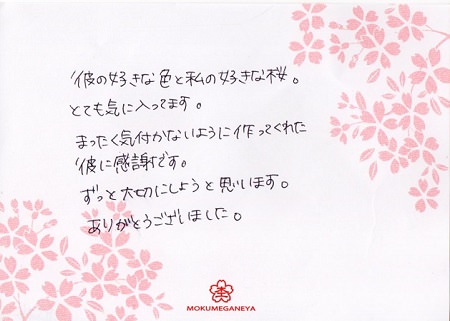 彼の好きな色と私の好きな桜。
とても気に入ってます。
まったく気付かないように作ってくれた
彼に感謝です。
ずっと大切にしようと思います。
ありがとうございました。
MOKUMEGANEYA